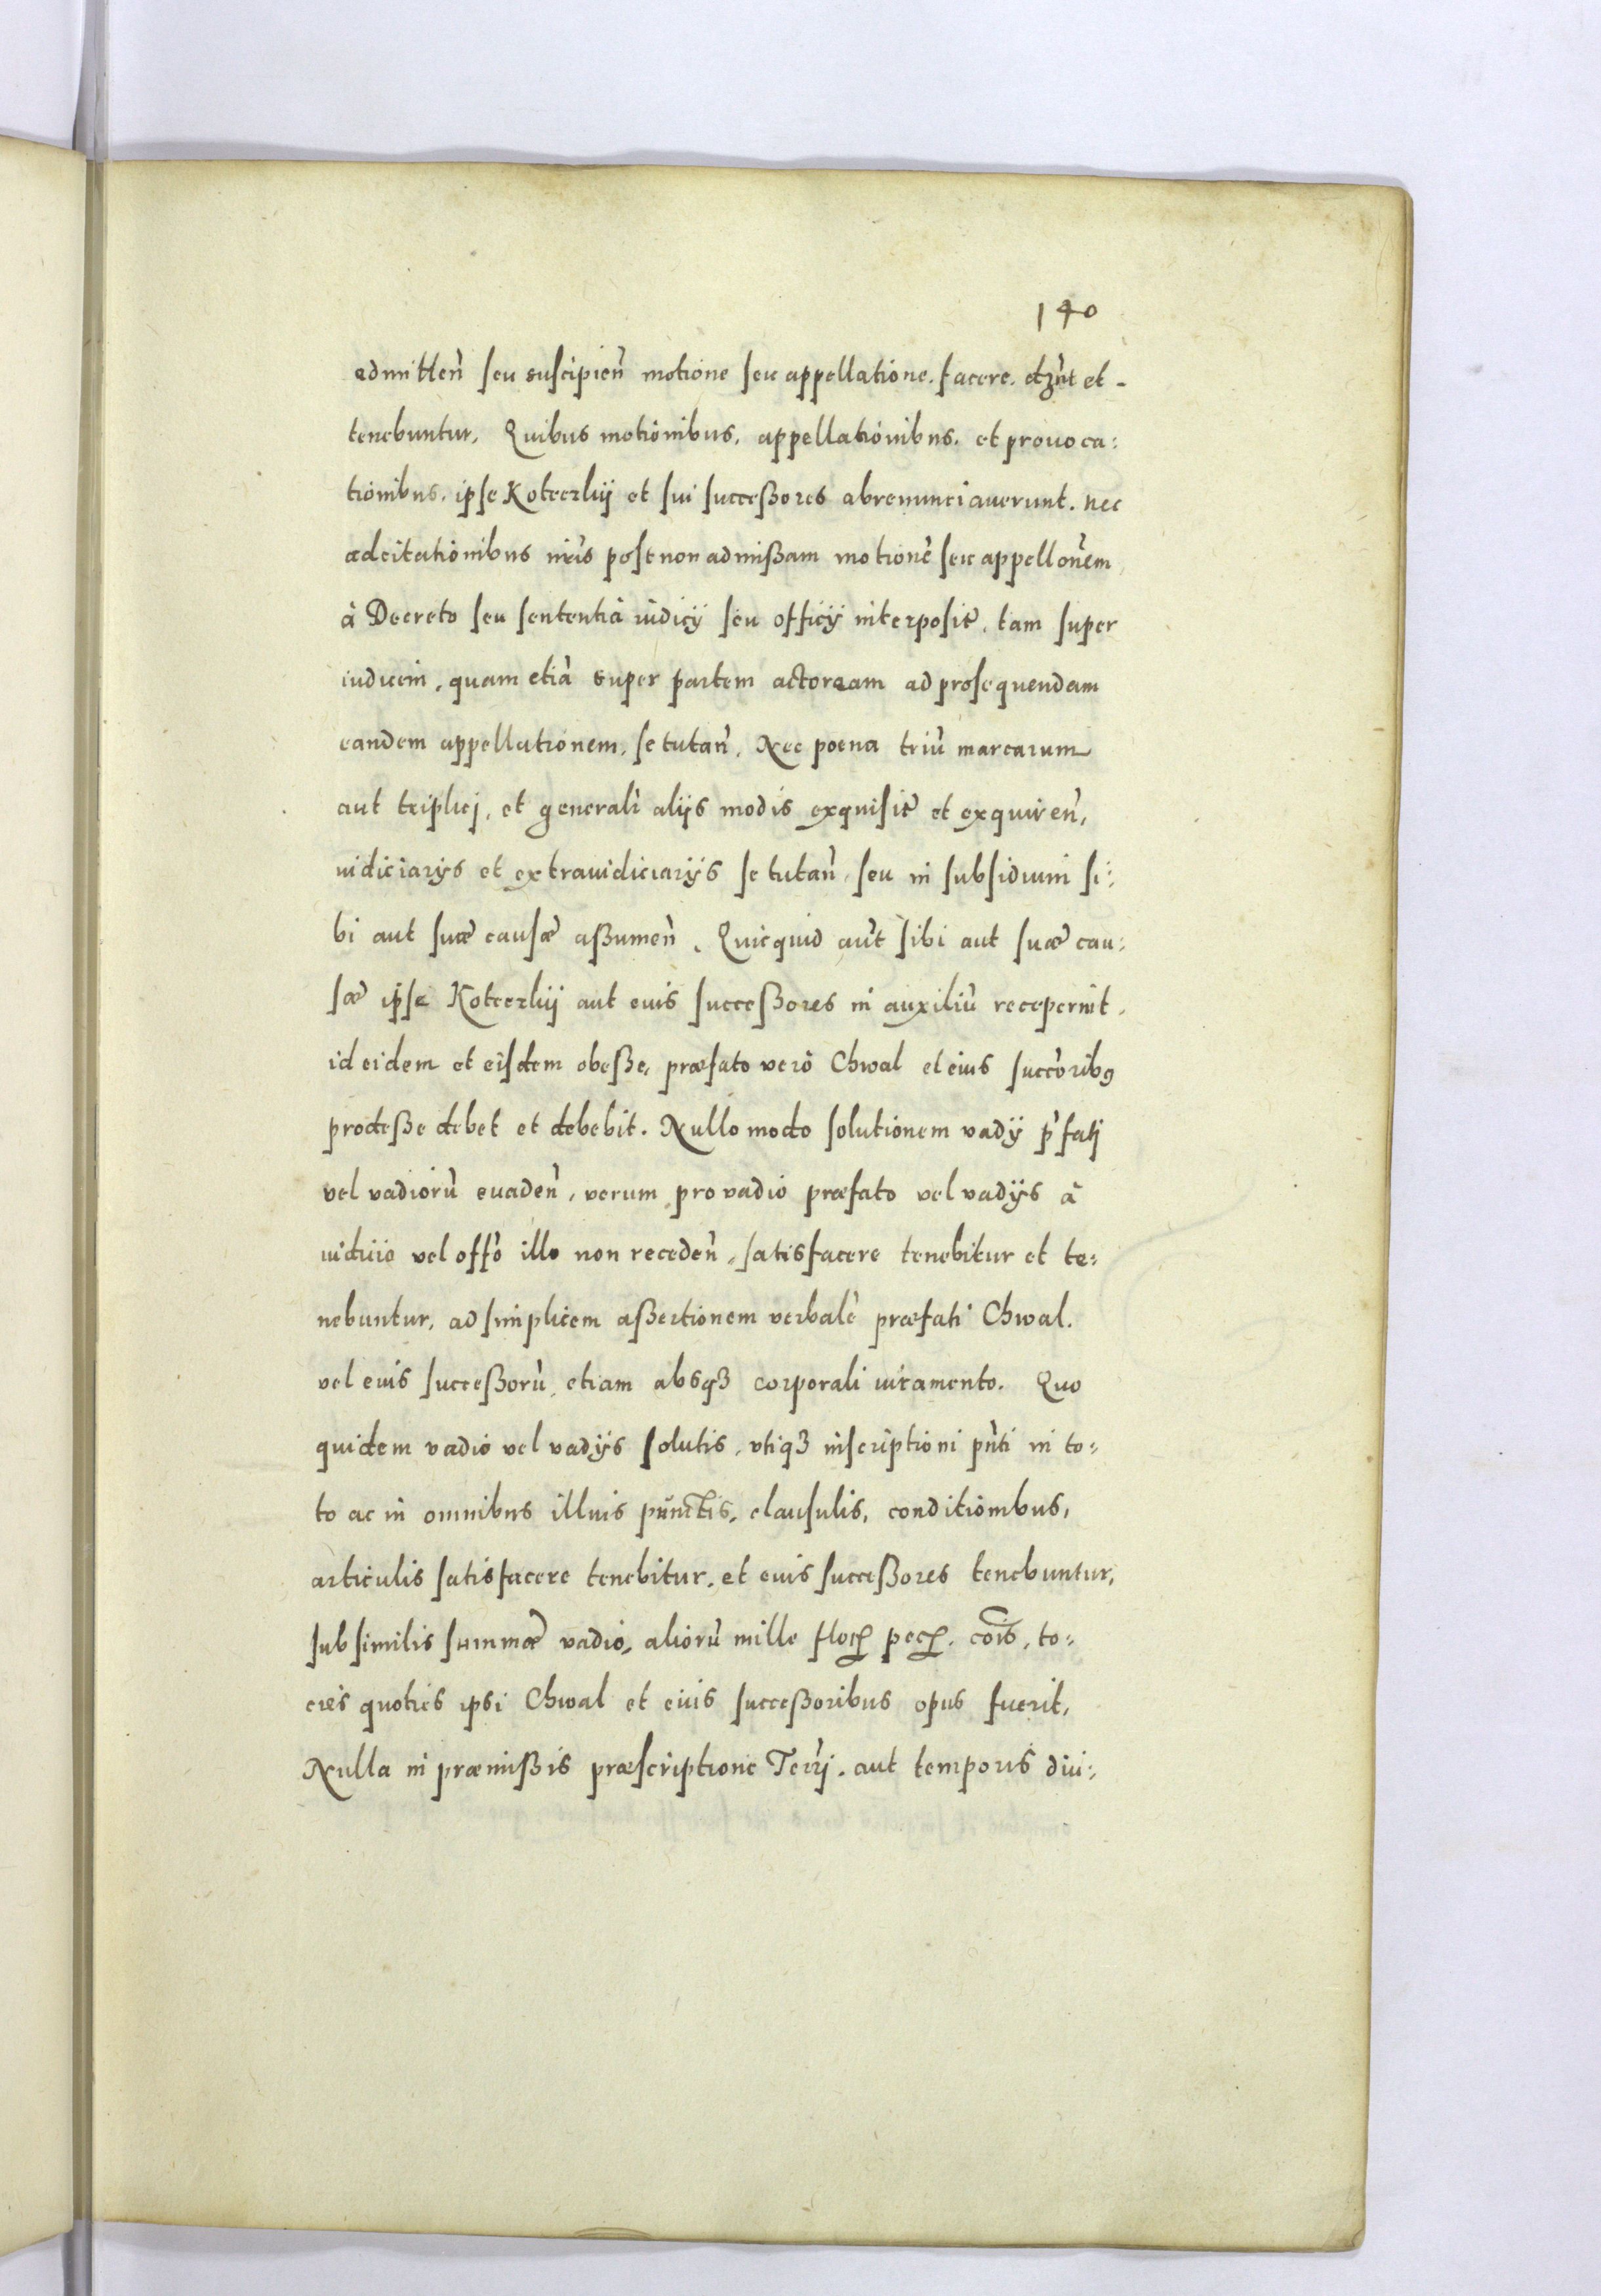 140
admitteñ seu suscipieñ motione seu appellatione. facere. dẽt et -
tenebuntur. Quibus motionibus. appellationibus. et prouoca:
tionibus. ipse Koteczkij et sui successores abrenunciauerunt. nec
adcitationibus post non admissam motionē seu appellonem
à Decreto seu sententia iudicij seu officij interposit. tam super
iudicem, quam etiā super partem actoream ad prosequendam
eandem appellationem. se tutañ. Nec poena triū marcarum
aut triplici, et generali alijs modis exquisit et exquireñ,
iudiciarijs et extraiudiciarijs se tutañ, seu in subsidium si:
bi aut suæ causæ assumeñ. Quicquid aūt sibi aut suæ cau:
sæ ipse aut eius successores in auxiliū receperint.
id eidem et eisdem obesse, præfato verò Chwal et eius succoribꝯ
prodesse debet et debebit. Nullo modo solutionem vadij p̄fati
vel vadiorū euadeñ, verum pro vadio præfato vel vadijs à
iudicio vel offo illo non recedeñ, satisfacere tenebitur et te:
nebuntur, ad simplicem assertionem verbalē præfati Chwal.
vel eius successorū, etiam absqꝫ corporali iuramento. Quo
quidem vadio vel vadijs solutis, vtiqꝫ inscriptioni pn̄ti in to:
to ac in omnibus illius punctis, clausulis, conditionibus,
articulis satisfacere tenebitur. et eius successores tenebuntur,
sub similis summæ vadio, aliorū mille floꝝ pecꝝ. cois, to:
cies quoties ipsi Chwal et eius successoribus opus fuerit,
Nulla in præmissis præscriptione Terrj. aut temporis diu: